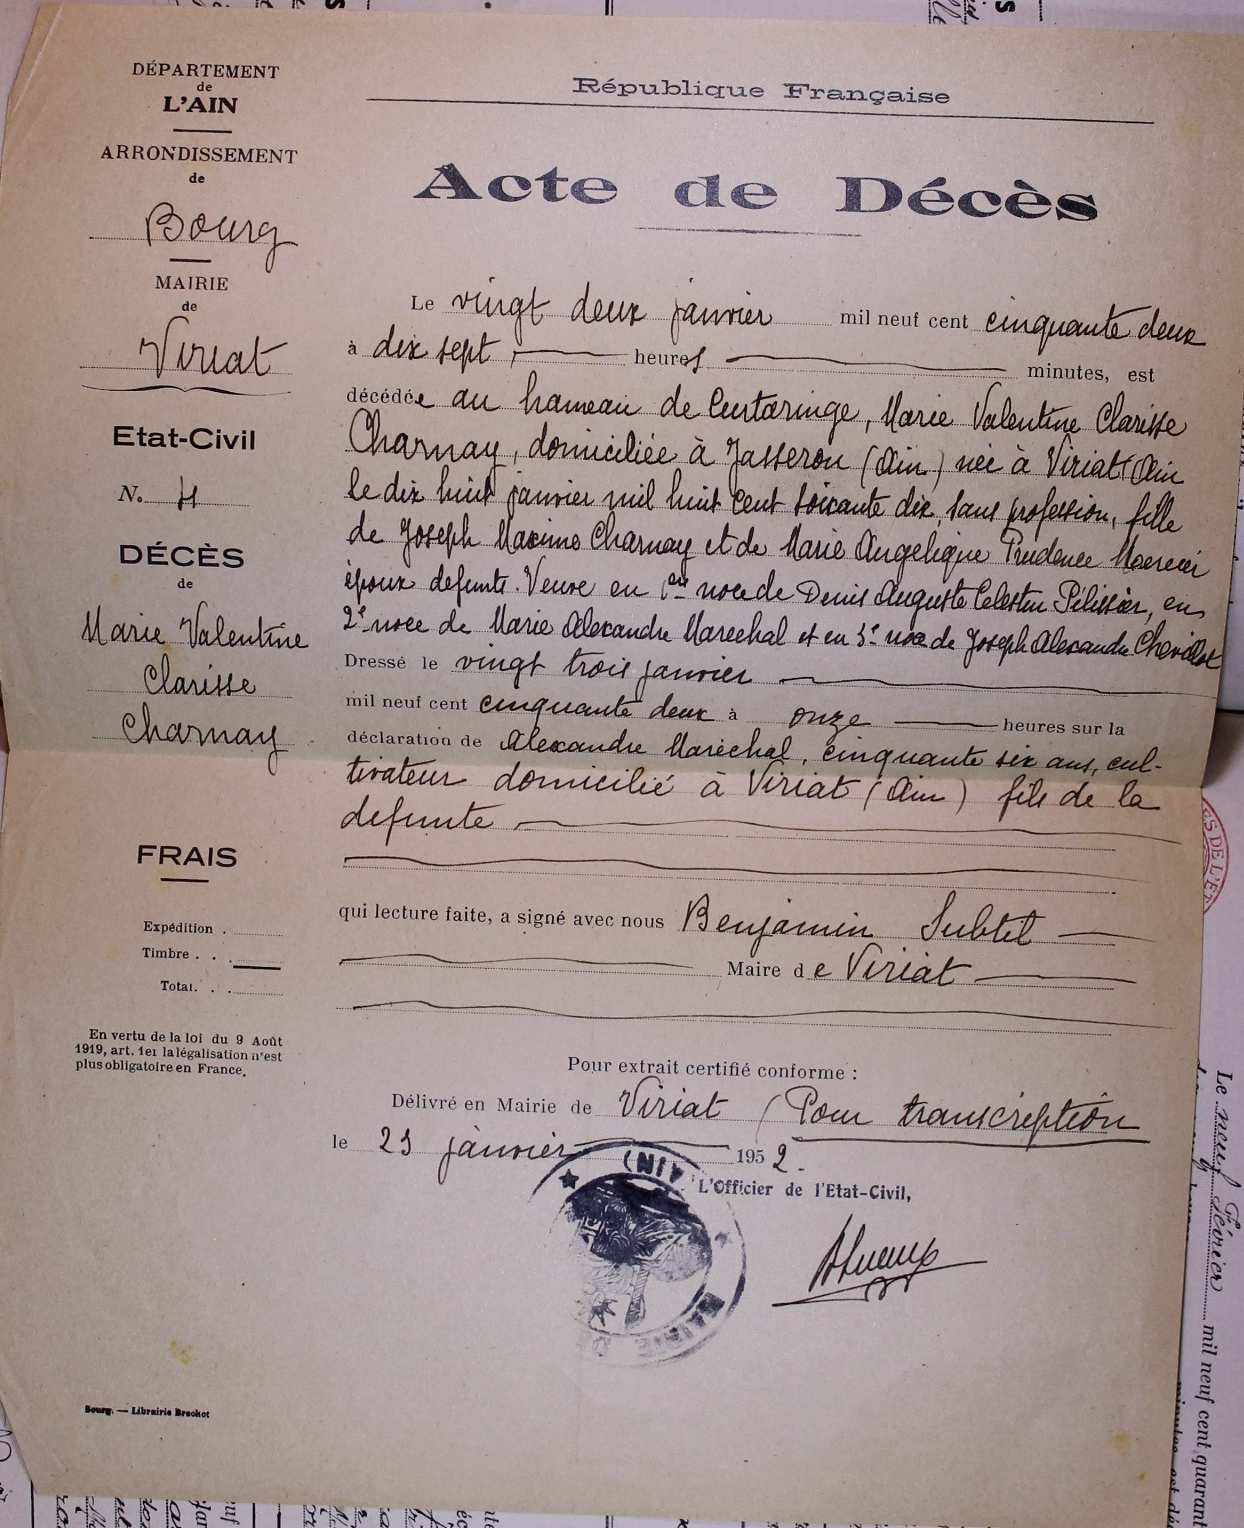 DÉPARTEMENT
de
L'AIN
ARRONDISSEMENT
de
Bourg
MAIRIE
de
Viriat
Etat-Civil
N. 4
DÉCÈS
de
Marie Valentine
Clarisse
Charnay
FRAIS
Expédition .
Timbre . . .
Total. . .
En vertu de la loi du 9 Août
1919, art. 1er la légalisation n'est
plus obligatoire en France.
Bourg. — Librairie Brochot
République Française
Acte de Décès
Le vingt deux janvier mil neuf cent cinquante deux
à dix sept heures minutes, est
décédée au hameau de Curtaringe, Marie Valentine Clarisse
Charnay, domiciliée à Jasseron (Ain) née à Viriat (Ain
le dix huit janvier mil huit cent soixante dix, sans profession, fille
de Joseph Maxime Charnay et de Marie Angelique Prudence
époux defunts. Veuve en 1er noce de Denis Auguste Celestin Pélissier, en
2e noce de Marie Alexandre Marechal et en 3e noce de Joseph Alexandre Chevillot
Dressé le vingt trois janvier
mil neuf cent cinquante deux à onze heures sur la
déclaration de Alexandre Maréchal, cinquante six ans, cul-
tivateur domicilié à Viriat (Ain) fils de la
defunte
qui lecture faite, a signé avec nous Benjamin Subtil
Maire de Viriat
Pour extrait certifié conforme :
Délivré en Mairie de Viriat (Pour transcription
le 23 janvier 1952.
L'Officier de l'Etat-Civil,
(AIN)
MAIRIE DE
Le neuf Février mil neuf cent quarant